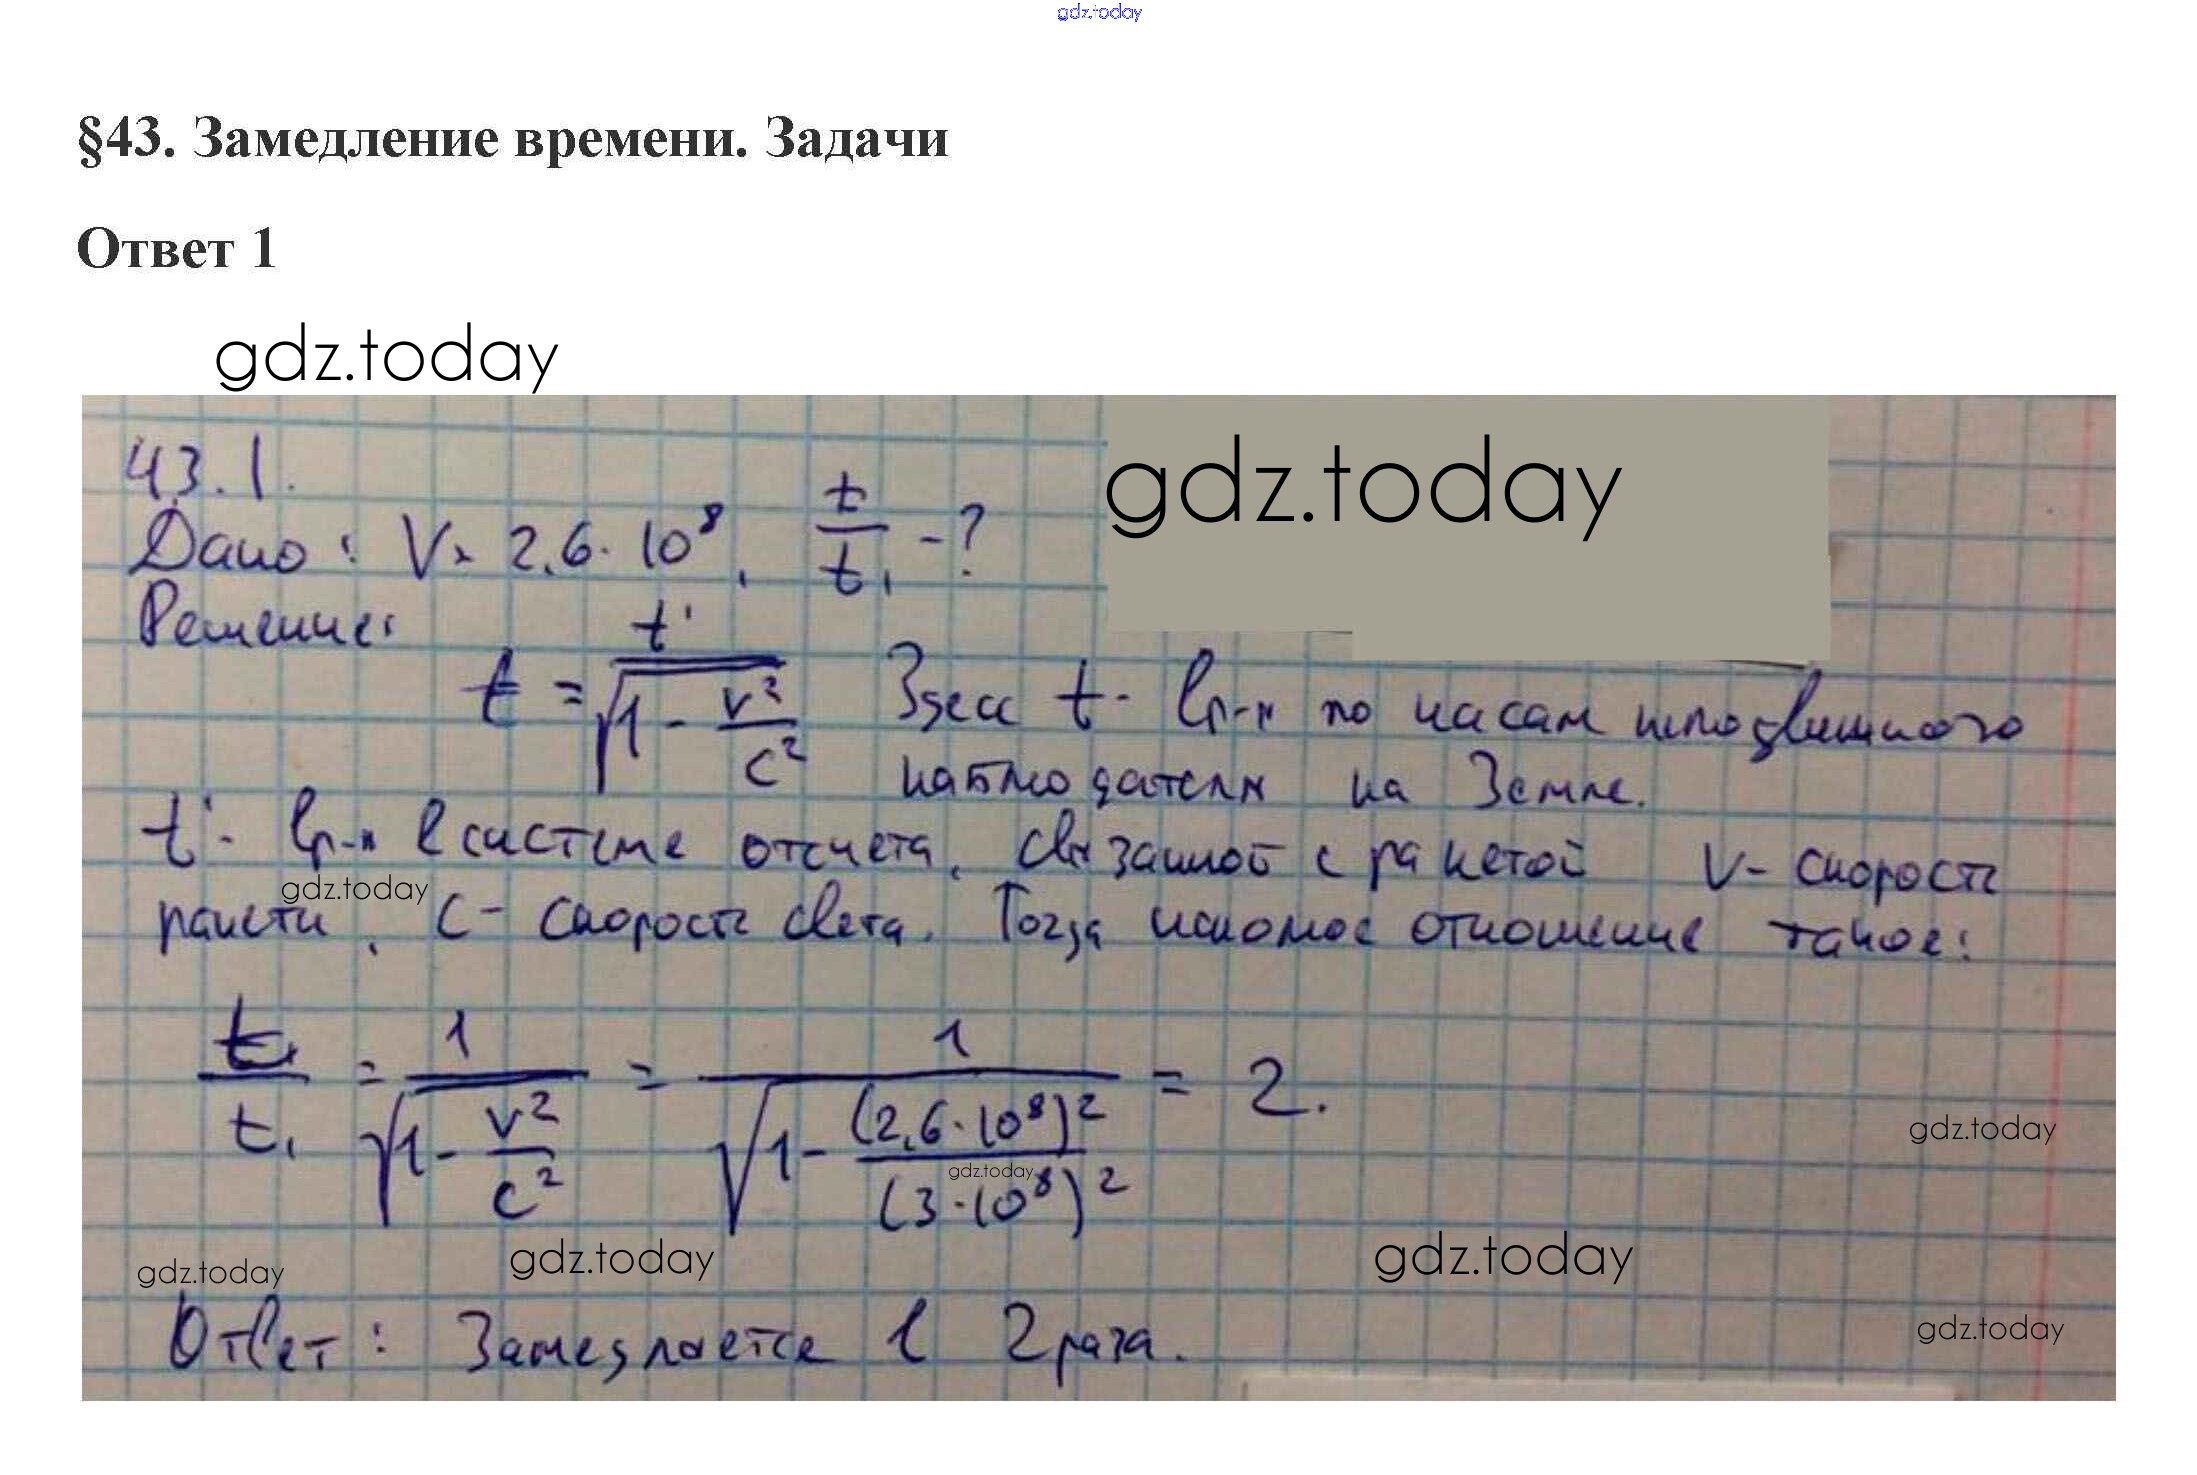 gdz.today
§43. Замедление времени. Задачи
Ответ 1
gdz.today
gdz.today
43.1.
Дано: V = 2,6 · 10⁸, t/t₁ - ?
Решение:
t = t'/√(1 - v²/c²) Здесь t - вр-я по часам неподвижного
наблюдателя на Земле.
t' - вр-я в системе отсчета, связанной с ракетой V - скорость
gdz.today
ракеты, c - скорость света. Тогда искомое отношение такое:
t/t₁ = 1/√(1 - v²/c²) = 1/√(1 - (2,6·10⁸)²/(3·10⁸)²) = 2.
gdz.today
gdz.today
gdz.today
gdz.today
gdz.today
gdz.today
Ответ: Замедляется в 2 раза.